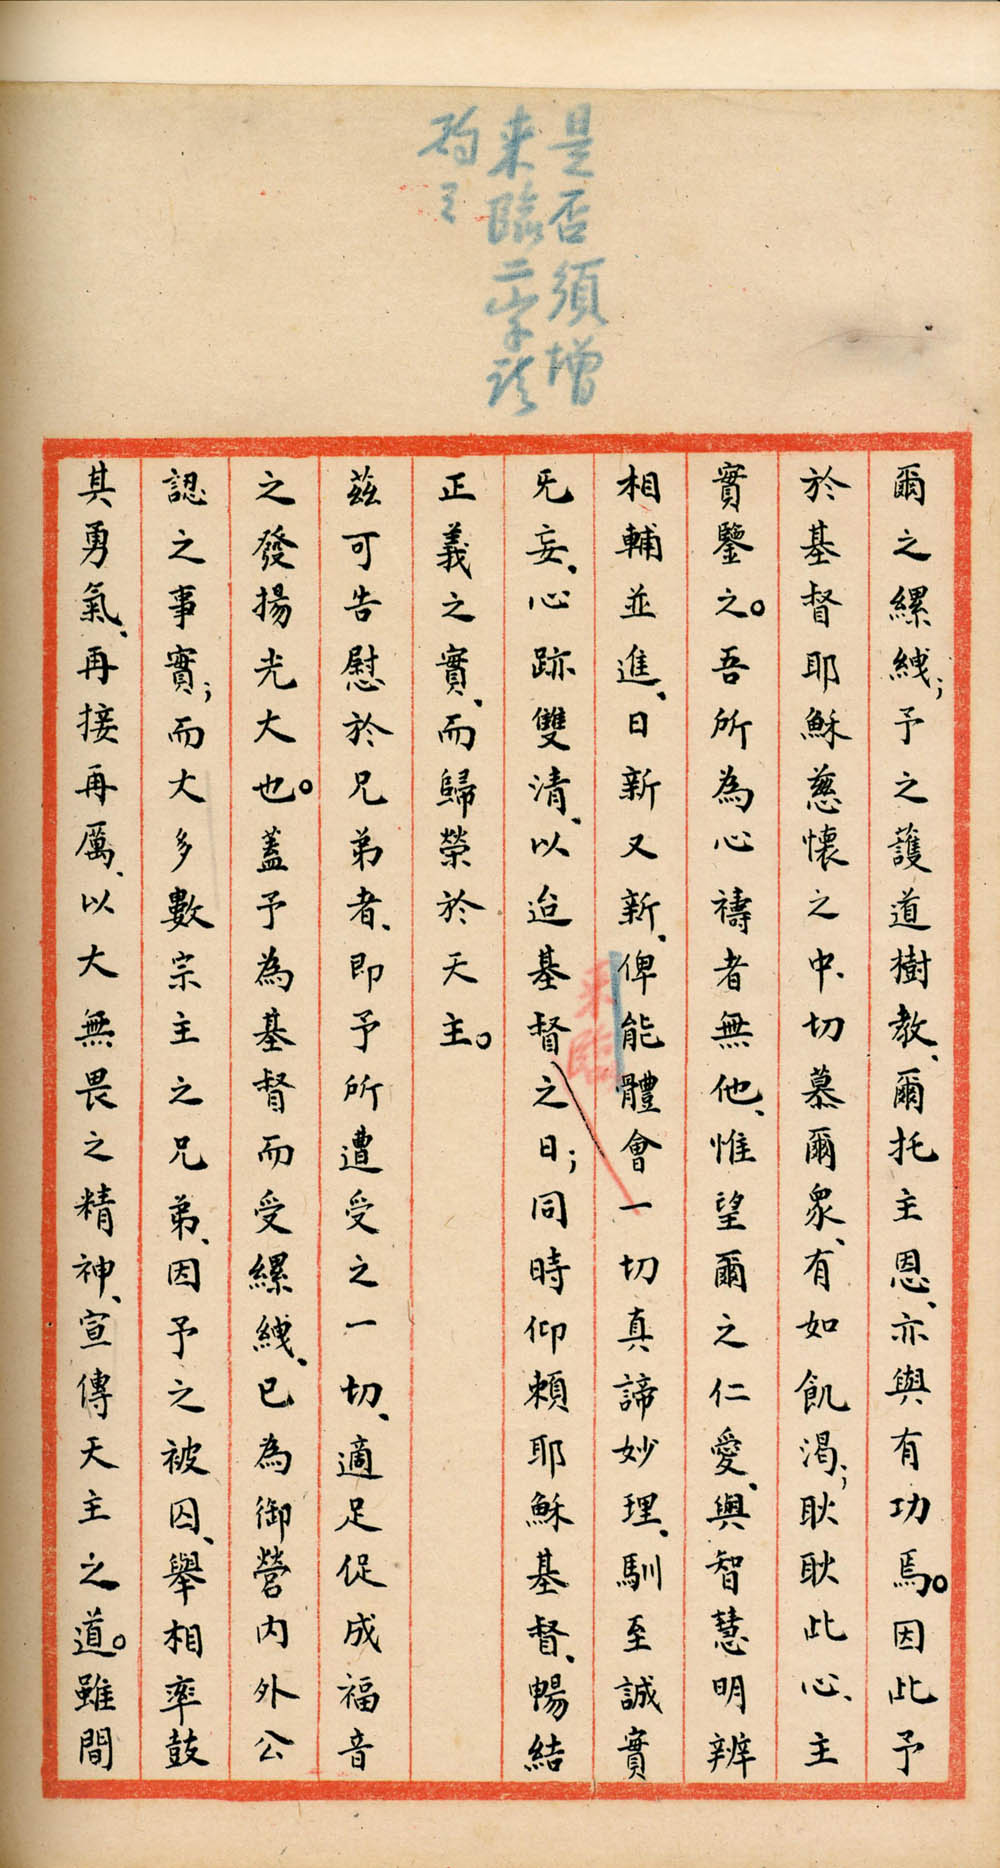 是否須增
来臨二字請
酌之
爾之縲絏；予之護道樹教、爾托主恩、亦與有功焉。因此予
於基督耶穌慈懷之中、切慕爾眾、有如飢渴；耿耿此心、主
實鑒之。吾所為心禱者無他、惟望爾之仁愛、與智慧明辨
相輔並進、日新又新、俾能體會一切真諦妙理、馴至誠實
无妄、心跡雙清、以迨基督之日；同時仰賴耶穌基督、暢結
来臨
正義之實、而歸榮於天主。
茲可告慰於兄弟者、即予所遭受之一切、適足促成福音
之發揚光大也。蓋予為基督而受縲絏、已為御營內外公
認之事實；而大多數宗主之兄弟、因予之被囚、舉相率鼓
其勇氣、再接再厲、以大無畏之精神、宣傳天主之道。雖間